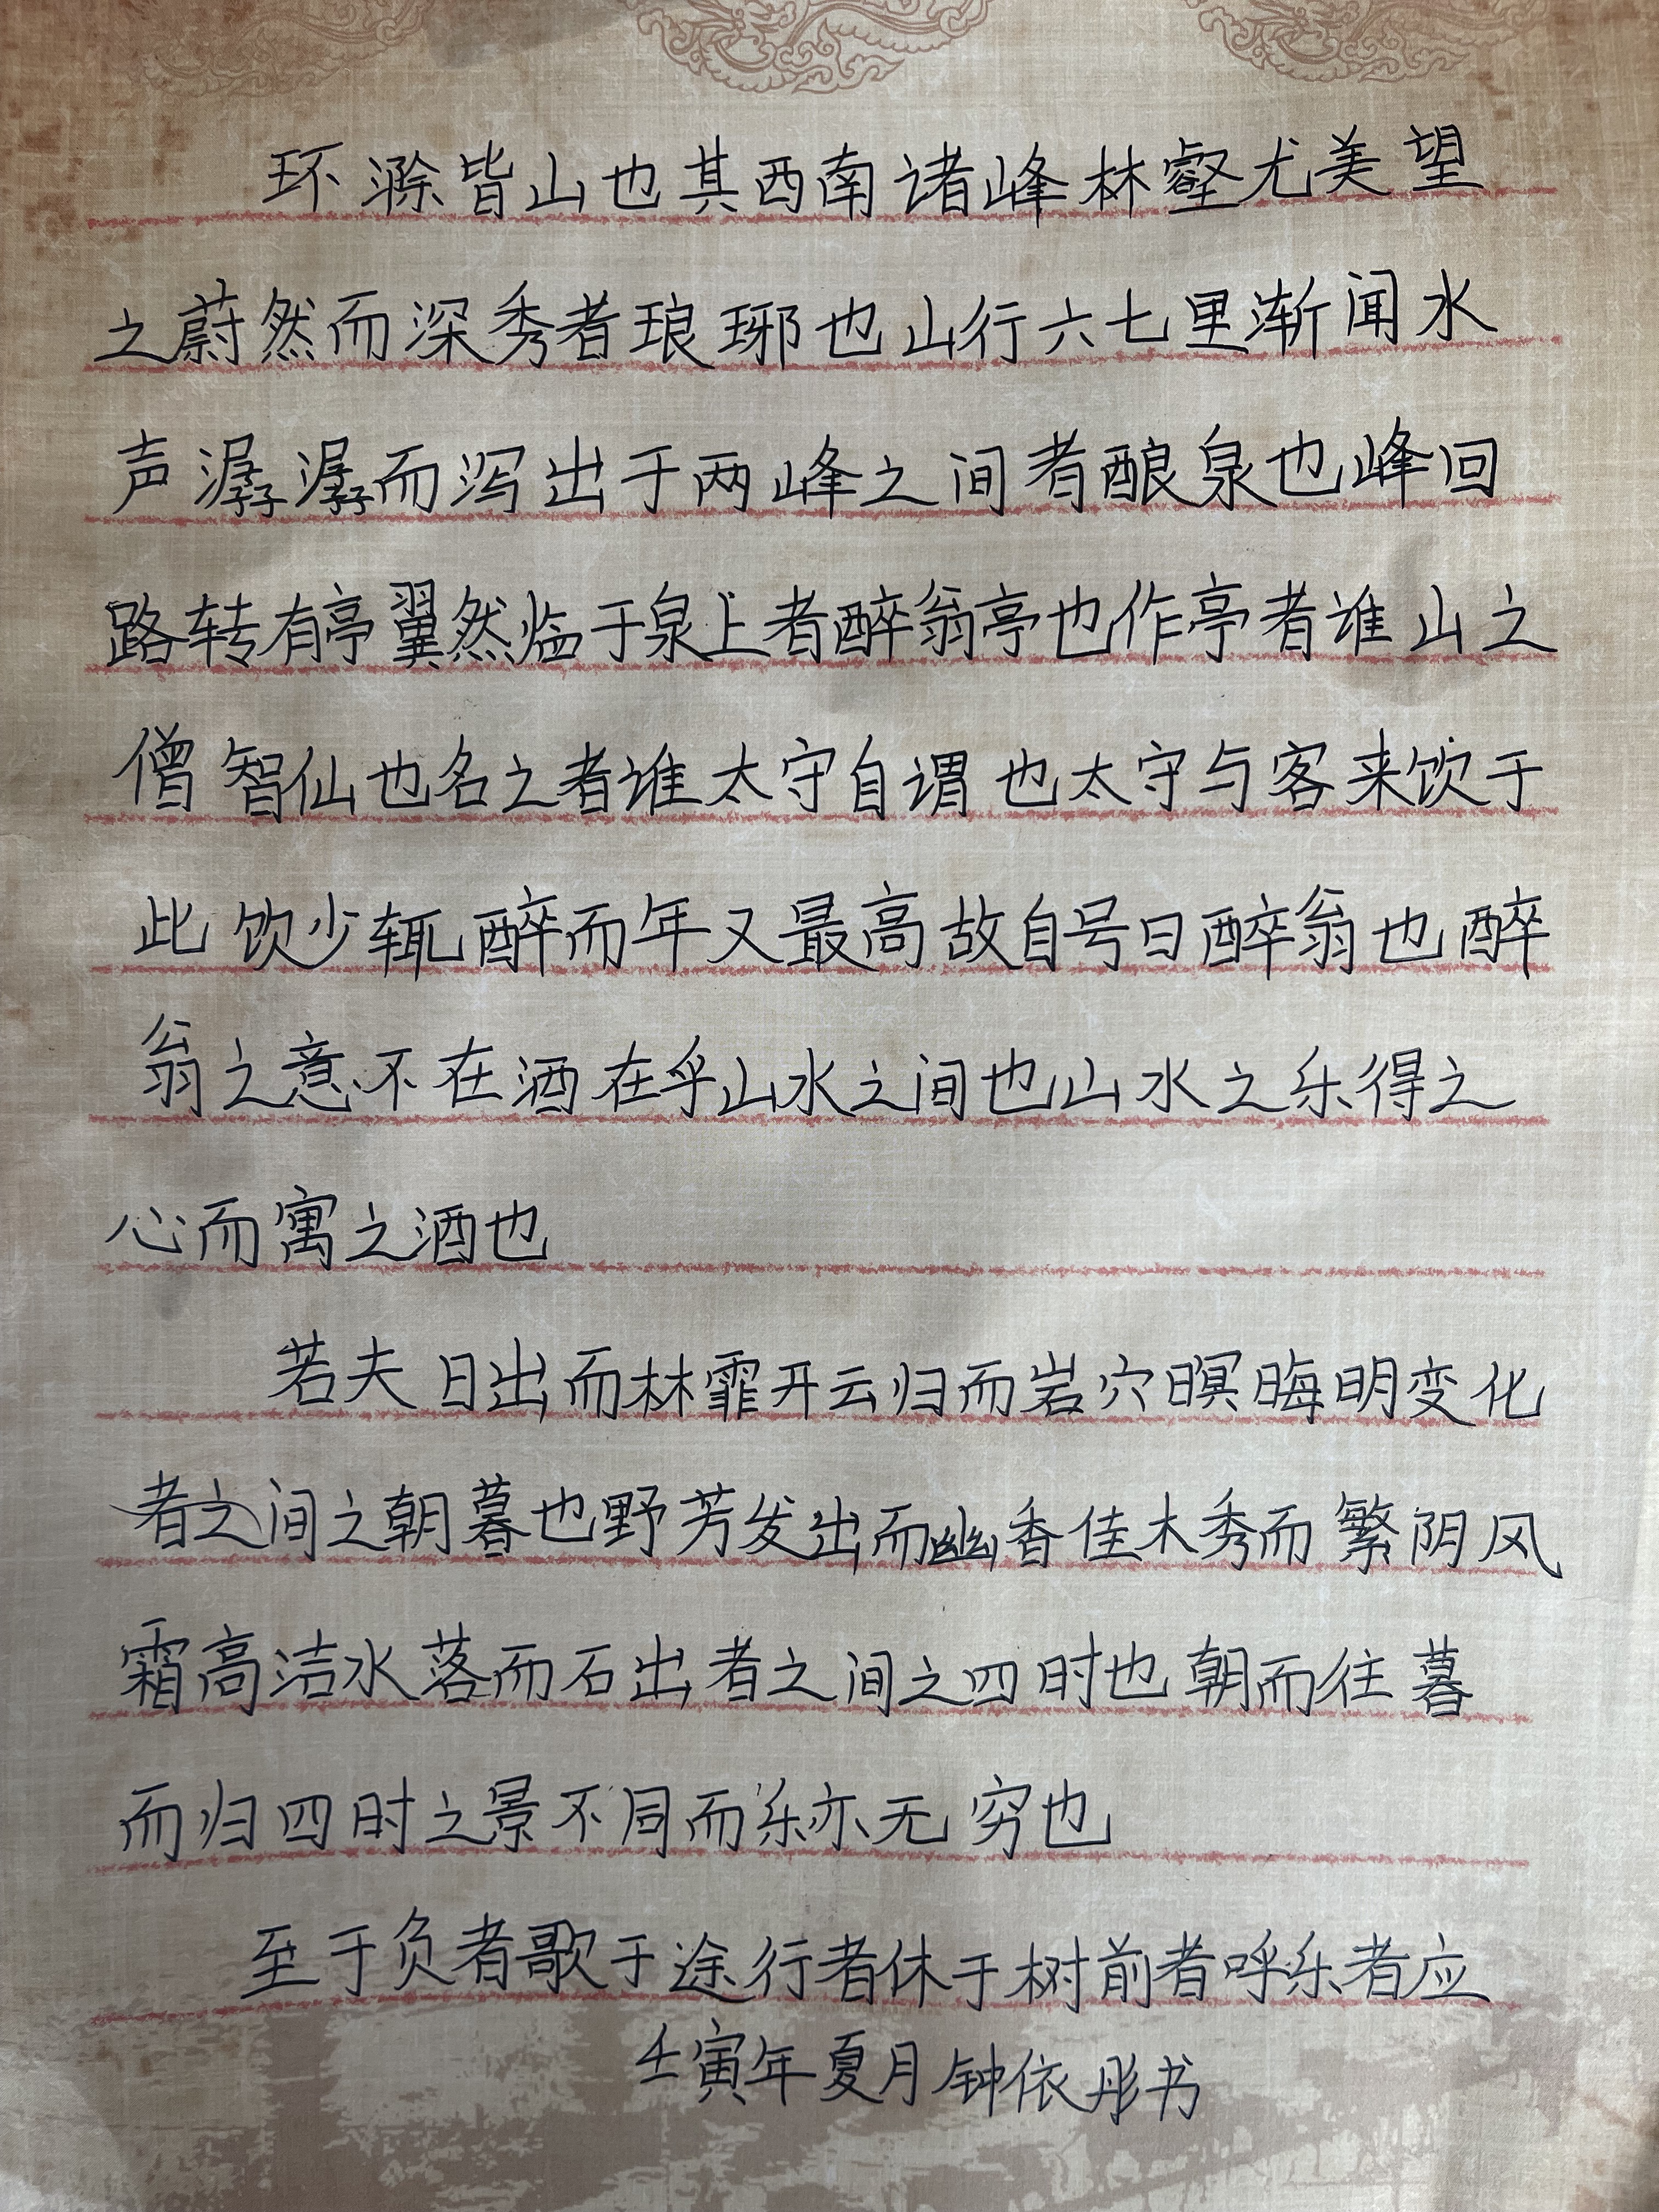 环滁皆山也其西南诸峰林壑尤美望
之蔚然而深秀者琅琊也山行六七里渐闻水
声潺潺而泻出于两峰之间者酿泉也峰回
路转有亭翼然临于泉上者醉翁亭也作亭者谁山之
僧智仙也名之者谁太守自谓也太守与客来饮于
此饮少辄醉而年又最高故自号曰醉翁也醉
翁之意不在酒在乎山水之间也山水之乐得之
心而寓之酒也
若夫日出而林霏开云归而岩穴暝晦明变化
者之间之朝暮也野芳发出而幽香佳木秀而繁阴风
霜高洁水落而石出者之间之四时也朝而往暮
而归四时之景不同而乐亦无穷也
至于负者歌于途行者休于树前者呼乐者应
壬寅年夏月钟依彤书